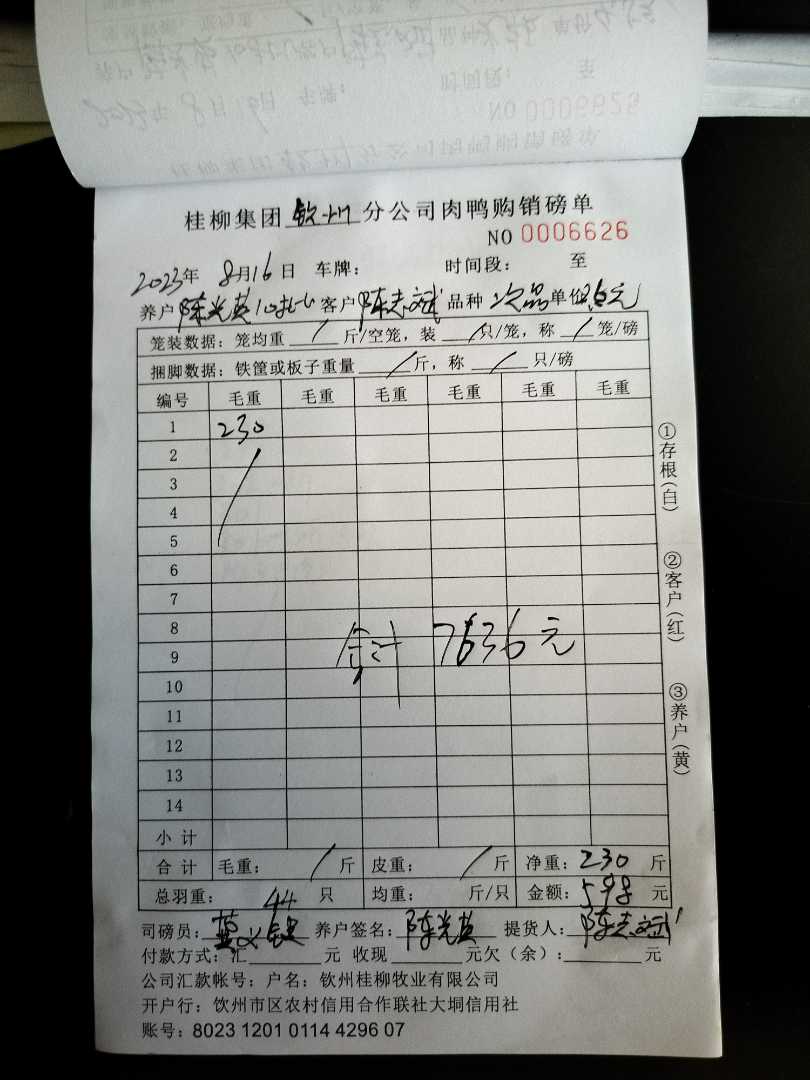 桂柳集团 钦州 分公司肉鸭购销磅单
NO 0006626
2023年 8月16日 车牌: 时间段: 至
养户 陈光英 客户 陈志斌 品种 次品 单价 元
笼装数据: 笼均重 / 斤/空笼, 装 / 只/笼, 称 / 笼/磅
捆脚数据: 铁筐或板子重量 / 斤, 称 / 只/磅
编号 毛重 毛重 毛重 毛重 毛重 毛重
1 230
2
3
4
5
6
7
8
9
合计 7636元
10
11
12
13
14
小计
合计 毛重: / 斤 皮重: / 斤 净重: 230 斤
总羽重: 44 只 均重: 斤/只 金额: 598 元
司磅员: 养户签名: 陈光英 提货人: 陈志斌
付款方式: 汇 元 收现 元欠(余): 元
公司汇款帐号: 户名: 钦州桂柳牧业有限公司
开户行: 饮州市区农村信用合作联社大垌信用社
账号: 8023 1201 0114 4296 07
①存根(白)
②客户(红)
③养户(黄)
NO 0006626